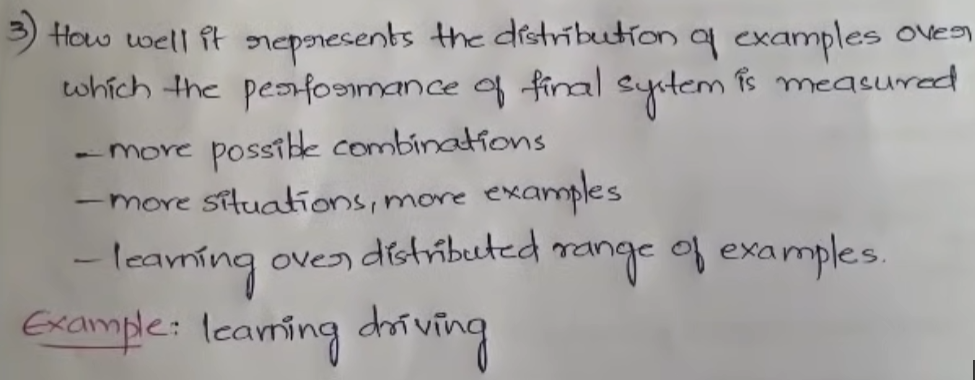 3) How well it represents the distribution of examples over
which the performance of final system is measured
- more possible combinations
- more situations, more examples
- learning over distributed range of examples.
Example: learning driving